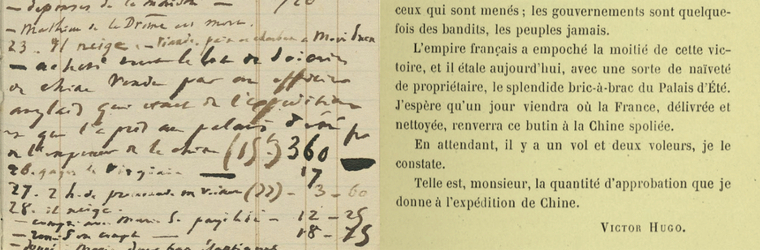 — dépenses de la maison — /20
— Mathieu de la Drôme est mort.
23. Il neige. —
— acheté tout le lot de soieries
de chine vendu par un officier
anglais qui était de l'expédition
et qui l'a pris au palais d'été
de l'empereur de la chine (15) 360
26. gages de Virginie — 17
27. 2 h. de promenade en voiture — 3 — 60
28. il neige.
— 12 — 25
— 18 — 75
ceux qui sont menés ; les gouvernements sont quelque-
fois des bandits, les peuples jamais.
L'empire français a empoché la moitié de cette vic-
toire, et il étale aujourd'hui, avec une sorte de naïveté
de propriétaire, le splendide bric-à-brac du Palais d'Été.
J'espère qu'un jour viendra où la France, délivrée et
nettoyée, renverra ce butin à la Chine spoliée.
En attendant, il y a un vol et deux voleurs, je le
constate.
Telle est, monsieur, la quantité d'approbation que je
donne à l'expédition de Chine.
VICTOR HUGO.